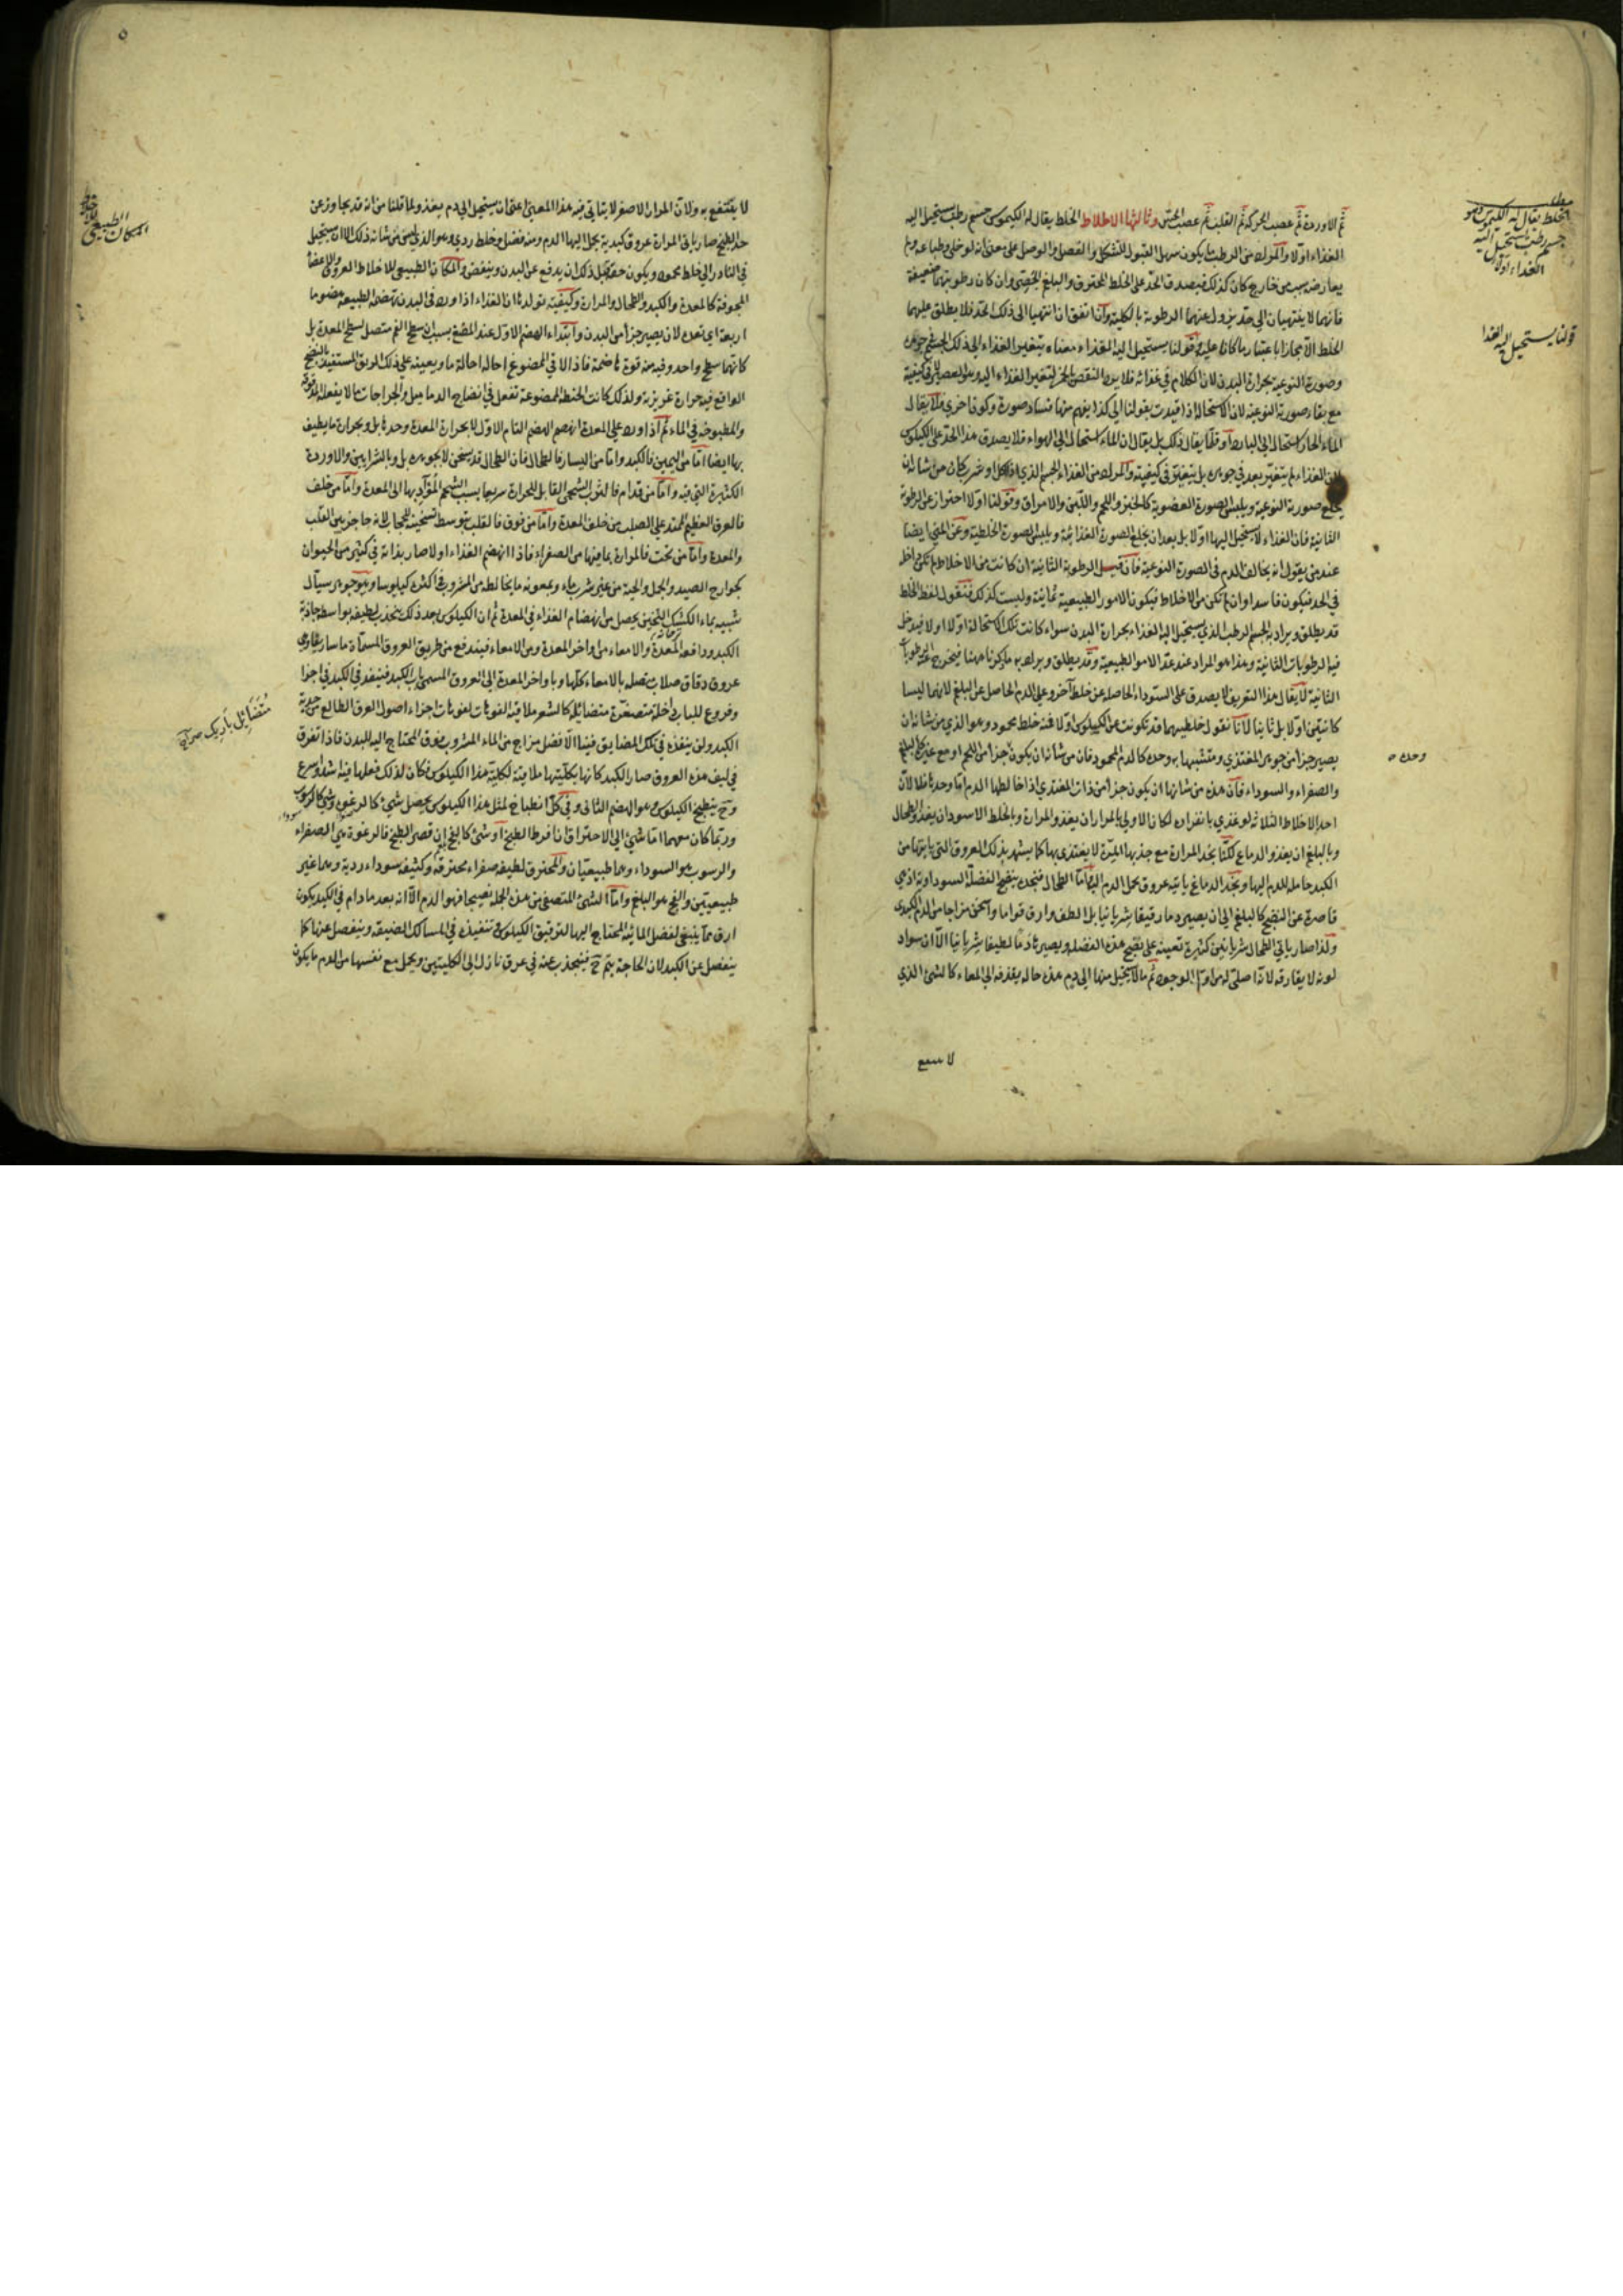 ثم الاوردة ثم عصب الحركة ثم القلب ثم عصب الحس وثالثها الاخلاط الخلط يقال له الكيموس جسم رطب يستحيل اليه
الغذاء اولا والمراد من الرطب ما يكون سهل القبول للتشكل والفصل والوصل على معنى انه لو خلى وطباعه ولم
يعارضه سبب من خارج كان كذلك فيصدق الحد على الخلط المحترق والبلغم الجصى وان كان رطوبتهما ضعيفة
فانهما لا ينتهيان الى حد يزول عنهما الرطوبة بالكلية وان اتفق ان انتهيا الى ذلك الحد فلا يطلق عليهما
الخلط الا مجازا باعتبار ما كانا عليه وقولنا يستحيل اليه الغذاء معناه يتغير الغذاء الى ذلك الجسم بجوهره
وصورته النوعية بحرارة البدن لان الكلام في غذائه فلا يرد النقض
مع بقاء صورته النوعية لان الاستحالة اذا قيدت بقولنا الى كذا يفهم منها فساد صورة وكون اخرى فلا يقال
الماء الحار استحال الى البارد او قلما يقال ذلك بل يقال ان الماء استحال الى الهواء فلا يصدق هذا الحد على الكيلوس
لان الغذاء لم يتغير بعد في جوهره بل يتغير في كيفيته والمراد من الغذاء الجسم الذي اذا اكل او شرب كان من شانه ان
يخلع صورته النوعية ويلبس الصورة العضوية كالخبز واللحم واللبن والامراق وقولنا اولا احتراز عن الرطوبة
الثانية فان الغذاء لا يستحيل اليها اولا بل بعد ان يخلع الصورة الغذائية ويلبس الصورة الخلطية وعن المني ايضا
عند من يقول انه يخالف الدم في الصورة النوعية فان قيل الرطوبة الثانية ان كانت من الاخلاط لم تكن داخلة
في الحد فيكون فاسدا وان لم تكن من الاخلاط فيكون الامور الطبيعية ثمانية وليست كذلك فنقول لفظ الخلط
قد يطلق ويراد به الجسم الرطب الذي يستحيل اليه الغذاء بحرارة البدن سواء كانت تلك الاستحالة اولا او لا فيدخل
فيه الرطوبات الثانية وهذا هو المراد عند عد الامور الطبيعية وقد يطلق ويراد به ما ذكرنا ههنا فيخرج عنه الرطوبات
الثانية لا يقال هذا التعريف لا يصدق على السوداء الحاصلة عن خلط آخر وعلى الدم الحاصل عن البلغم لانهما ليسا
كائنين اولا بل ثانيا لانا نقول خلطيتهما قد تكونت عن الكيلوس اولا فمنه خلط محمود وهو الذي من شانه ان
يصير جزأ من جوهر المغتذي ومتشبها به وحده كالدم المحمود فان من شانه ان يكون جزأ من اللحم او مع غيره كالبلغم
والصفراء والسوداء فان هذه من شانها ان يكون جزأ من ذات المغتذي اذا خالطها الدم اما وحدها فلا لان
احد الاخلاط الثلاثة لو غذي بانفراده لكان الاولى بالمرار ان يغذو المرارة وبالخلط الاسود ان يغذو الطحال
وبالبلغم ان يغذو الدماغ لكنا نجد المرارة مع جذبها المرة لا يغتذي بها كما يشهد بذلك العروق التي ياتيها من
الكبد حاملة للدم اليها ونجد الدماغ ياتيه عروق تحمل الدم اليه اما الطحال فنجده ينضج الفضلة السوداوية اذ هي
قاصرة عن النضج كالبلغم الى ان يصير دما رقيقا شريانيا بل الطف وارق قواما واسخن مزاجا من الدم الكبدي
ولذا صار ياتي الطحال شرايين كثيرة تعينه على نضج هذه الفضلة ويصير دما لطيفا شريانيا الا ان سواد
لونه لا يفارقه لانه اصلي له من اول الوجود ثم ما لا يحيل منها الى دم هذه حاله يقذفه الى المعاء كالشئ الذي
لا ينتفع
الخلط يقال له الكيموس وهو
جسم رطب يستحيل اليه
الغذاء اولا
قولنا يستحيل اليه الغذا
وحده
٥
لا ينتفع به ولان المرار الاصفر لا يتاتى فيه هذا المعنى اعنى ان يستحيل الى دم يغذو لما قلنا من انه قد يجاوز عن
حد الطبخ صار ياتي المرارة عروق كبدية يحمل اليها الدم ومنه فضل وخلط ردي وهو الذي ليس من شانه ذلك الا ان يستحيل
في النادر الى خلط محمود ويكون حقه قبل ذلك ان يدفع عن البدن وينفض والمكان الطبيعي للاخلاط العروق والاعضاء
المجوفة كالمعدة والكبد والطحال والمرارة وكيفية تولدها ان الغذاء اذا ورد في البدن تهضمه الطبيعة هضوما
اربعة اي تعده لان يصير جزأ من البدن وابتداء الهضم الاول عند المضغ بسبب ان سطح الفم متصل بسطح المعدة بل
كانهما سطح واحد وفيه منه قوة هاضمة فاذا لاقى الممضوغ احاله احالة ما ويعينه على ذلك الريق المستفيد بالنضج
الواقع فيه حرارة غريزية ولذلك كانت الحنطة الممضوغة تفعل في انضاج الدماميل والجراحات ما لا يفعله المدقوقة
والمطبوخة في الماء ثم اذا ورد على المعدة انهضم الهضم التام الاول لا بحرارة المعدة وحدها بل وبحرارة ما يطيف
بها ايضا اما من اليمين فالكبد واما من اليسار فالطحال فان الطحال قد يسخن لا بجوهره بل وبالشرايين والاوردة
الكثيرة التي فيه واما من قدام فالثرب الشحمي القابل للحرارة سريعا بسبب الشحم المؤديها الى المعدة واما من خلف
فالعرق العظيم الممتد على الصلب من خلف المعدة واما من فوق فالقلب بتوسط تسخينه للحجاب لانه حاجز بين القلب
والمعدة واما من تحت فالمرارة بما فيها من الصفراء فاذا انهضم الغذاء اولا صار بذاته في كثير من الحيوان
كجوارح الصيد والجمل والحية من غير شرب ماء وبمعونة ما يخالطه من المشروب في اكثره كيلوسا وهو جوهر سيال
شبيه بماء الكشك الثخين يحصل من انهضام الغذاء في المعدة ثم ان الكيلوس بعد ذلك ينجذب لطيفه بواسطة جاذبة
الكبد ودافعة المعدة والامعاء من اواخر المعدة ومن الامعاء فيندفع من طريق العروق المسماة ماساريقا وهي
عروق دقاق صلاب متصلة بالامعاء كلها وباواخر المعدة الى العروق المسمى باب الكبد فينفذ في الكبد في اجزاء
وفروع للباب داخلة متصغرة متضائلة كالشعر ملاقية لفوهات اجزاء اصول العرق الطالع من حدبة
الكبد ولن ينفذه في تلك المضايق فيها الا فضل مزاج من الماء المشروب فوق المحتاج اليه للبدن فاذا تفرق
في ليف هذه العروق صار الكبد كانها بكليتها ملاقية لكلية هذا الكيلوس فكان لذلك فعلها فيه اشد واسرع
وح ينطبخ الكيلوس وهو الهضم الثاني وفي كل انطباخ لمثل هذا الكيلوس يحصل شئ كالرغوة وشئ كالرسوب
وربما كان معهما اما شئ الى الاحتراق ان افرط الطبخ او شئ كالفج ان قصر الطبخ فالرغوة هي الصفراء
والرسوب هو السوداء وهما طبيعيتان والمحترق لطيفه صفراء محترقة وكثيفه سوداء ردية وهما غير
طبيعيتين والفج هو البلغم واما الشئ المتصفى من هذه الجملة نضيجا فهو الدم الا انه بعد ما دام في الكبد يكون
ارق مما ينبغي لفضل المائية المحتاج اليها لترقيق الكيلوس وتنفيذه في المسالك الضيقة وينفصل عنها كما
ينفصل عن الكبد لان الحاجة يتم ح فينجذب عنه في عرق نازل الى الكليتين ويحمل مع نفسها من الدم ما يكون
المكان الطبيعي للاخلاط
متضائل باريك